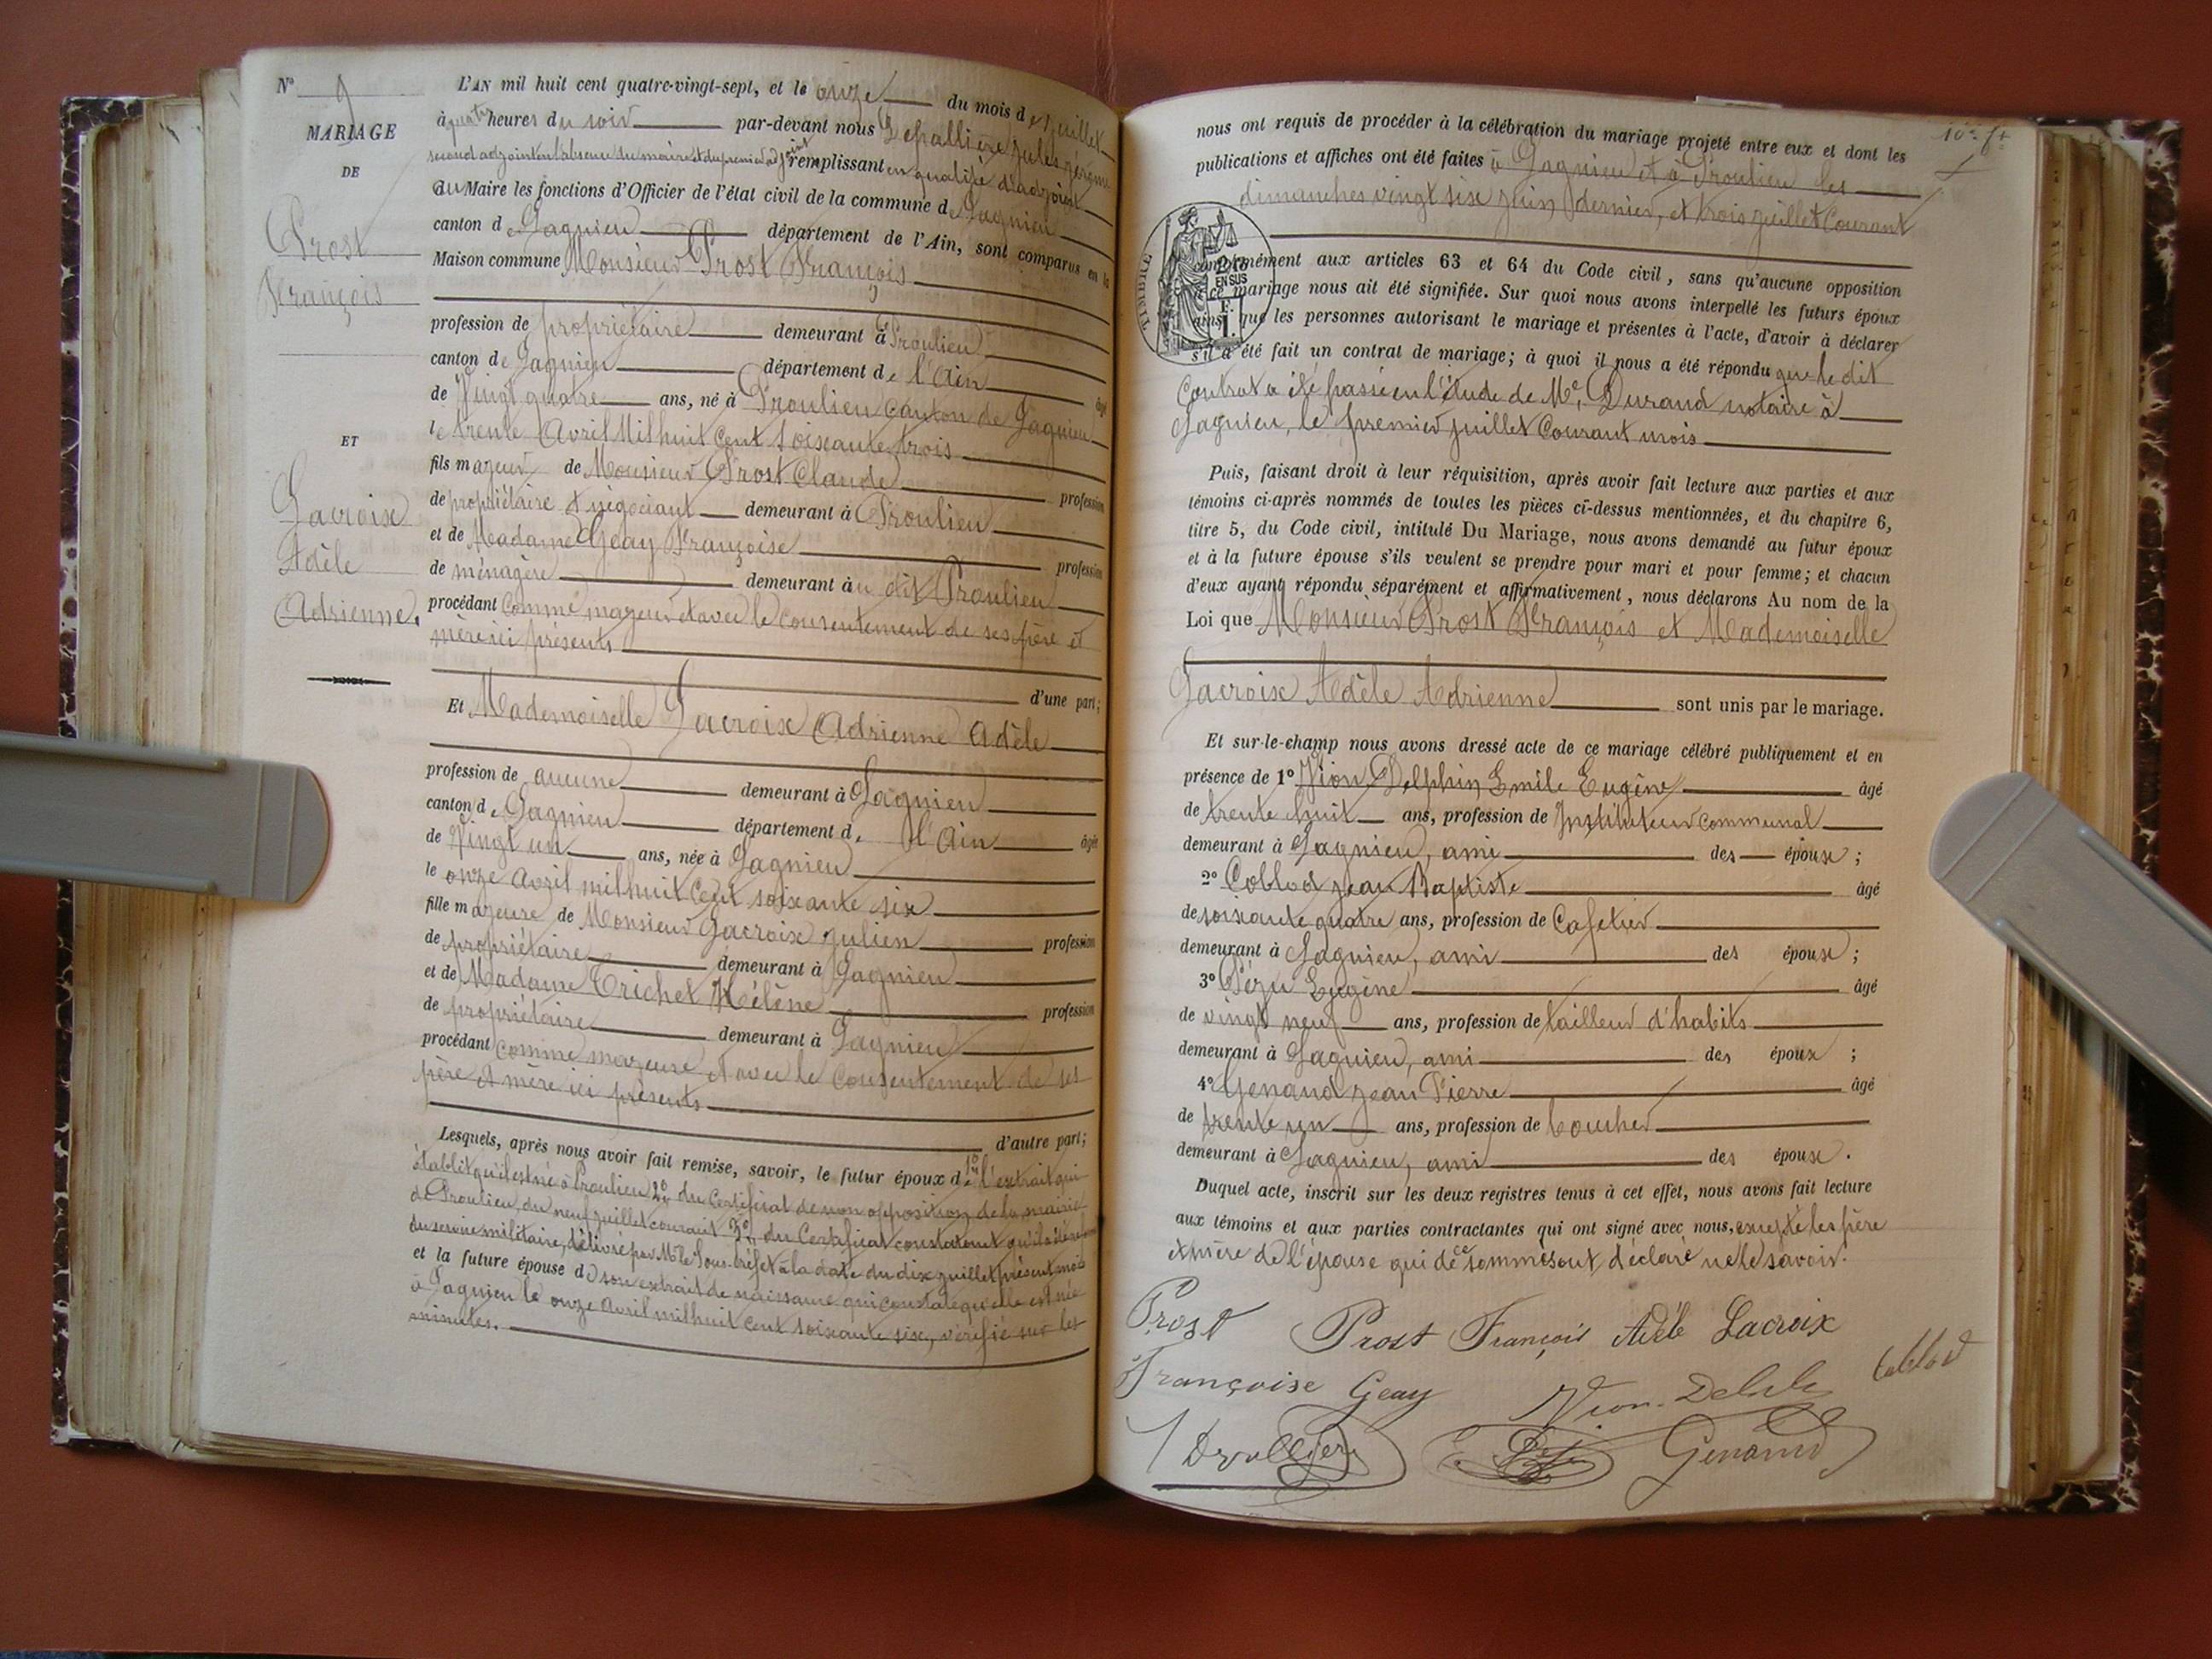 N° 9
MARIAGE
DE
Prost
François
ET
Lacroix
Adèle
Adrienne.
L'AN mil huit cent quatre-vingt-sept, et le onze du mois de juillet
à quatre heures du soir par-devant nous
second adjoint en l'absence du maire et du premier adjoint remplissant en qualité d'adjoint
au Maire les fonctions d'Officier de l'état civil de la commune de Lagnieu
canton de Lagnieu département de l'Ain, sont comparus en la
Maison commune Monsieur Prost François
profession de propriétaire demeurant à Proulieu
canton de Lagnieu département de l'Ain âgé
de Vingt quatre ans, né à Proulieu canton de Lagnieu
le trente Avril Mil huit Cent soixante trois
fils majeur de Monsieur Prost Claude profession
de propriétaire et négociant demeurant à Proulieu
et de Madame Geay Françoise profession
de ménagère demeurant au dit Proulieu
procédant comme majeur et avec le consentement de ses père et
mère ici présents
d'une part;
Et Mademoiselle Lacroix Adrienne Adèle
profession de aucune demeurant à Lagnieu
canton de Lagnieu département de l'Ain âgée
de Vingt un ans, née à Lagnieu
le onze Avril mil huit Cent soixante six
fille majeure de Monsieur Lacroix Julien profession
de propriétaire demeurant à Lagnieu
et de Madame Trichet Hélène profession
de propriétaire demeurant à Lagnieu
procédant comme majeure et avec le Consentement de ses
père et mère ici présents
d'autre part;
Lesquels, après nous avoir fait remise, savoir, le futur époux de 1° l'extrait qui
établit qu'il est né à Proulieu 2° du Certificat de non opposition de la mairie
de Proulieu, du neuf juillet courant 3° du Certificat constatant qu'il
du service militaire, délivré par Mr le Sous-Préfet à la date du dix juillet présent mois
et la future épouse de son extrait de naissance qui constate qu'elle est née
à Lagnieu le onze Avril mil huit cent soixante six, vérifié sur les
minutes.
10e ft
nous ont requis de procéder à la célébration du mariage projeté entre eux et dont les
publications et affiches ont été faites à Lagnieu et à Proulieu les
dimanches vingt six juin dernier, et trois juillet Courant
TIMBRE
2/10
EN SUS
F.
1.
conformément aux articles 63 et 64 du Code civil, sans qu'aucune opposition
à ce mariage nous ait été signifiée. Sur quoi nous avons interpellé les futurs époux
ainsi que les personnes autorisant le mariage et présentes à l'acte, d'avoir à déclarer
s'il a été fait un contrat de mariage; à quoi il nous a été répondu que le dit
Contrat a été passé en l'étude de Me, Durand notaire à
Lagnieu, le premier juillet Courant mois
Puis, faisant droit à leur réquisition, après avoir fait lecture aux parties et aux
témoins ci-après nommés de toutes les pièces ci-dessus mentionnées, et du chapitre 6,
titre 5, du Code civil, intitulé Du Mariage, nous avons demandé au futur époux
et à la future épouse s'ils veulent se prendre pour mari et pour femme; et chacun
d'eux ayant répondu séparément et affirmativement, nous déclarons Au nom de la
Loi que Monsieur Prost François et Mademoiselle
Lacroix Adèle Adrienne sont unis par le mariage.
Et sur-le-champ nous avons dressé acte de ce mariage célébré publiquement et en
présence de 1° Vion Delphin Emile Eugène âgé
de trente huit ans, profession de Instituteur communal
demeurant à Lagnieu, ami des époux ;
2° Collod Jean Baptiste âgé
de soixante quatre ans, profession de Cafetier
demeurant à Lagnieu, ami des époux ;
3° Pézu Eugène âgé
de vingt neuf ans, profession de tailleur d'habits
demeurant à Lagnieu, ami des époux ;
4° Genand Jean Pierre âgé
de trente un ans, profession de boucher
demeurant à Lagnieu, ami des époux .
Duquel acte, inscrit sur les deux registres tenus à cet effet, nous avons fait lecture
aux témoins et aux parties contractantes qui ont signé avec nous, excepté les père
et mère de l'épouse qui de ce sommés ont déclaré ne le savoir.
Prost Prost François Adèle Lacroix
Françoise Geay Vion-Delph Collod
Genand